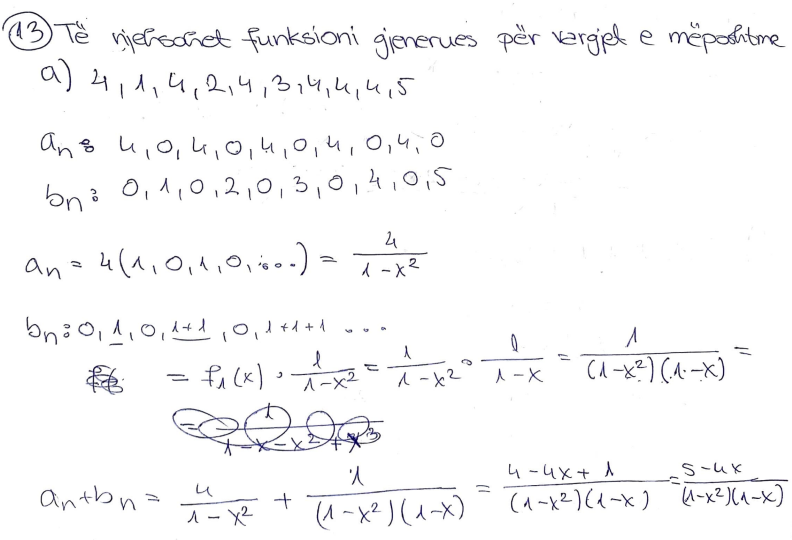 13 Të njehsohet funksioni gjenerues për vargjet e mëposhtme
a) 4, 1, 4, 2, 4, 3, 4, 4, 4, 5
an: 4, 0, 4, 0, 4, 0, 4, 0, 4, 0
bn: 0, 1, 0, 2, 0, 3, 0, 4, 0, 5
an = 4(1, 0, 1, 0, ....) = 4/(1-x²)
bn: 0, 1, 0, 1+1, 0, 1+1+1 ...
= f₁(x) · 1/(1-x²) = 1/(1-x²) · 1/(1-x) = 1/((1-x²)(1-x)) =
= 1/(1-x-x²+x³)
an+bn = 4/(1-x²) + 1/((1-x²)(1-x)) = (4-4x+1)/((1-x²)(1-x)) = (5-4x)/((1-x²)(1-x))